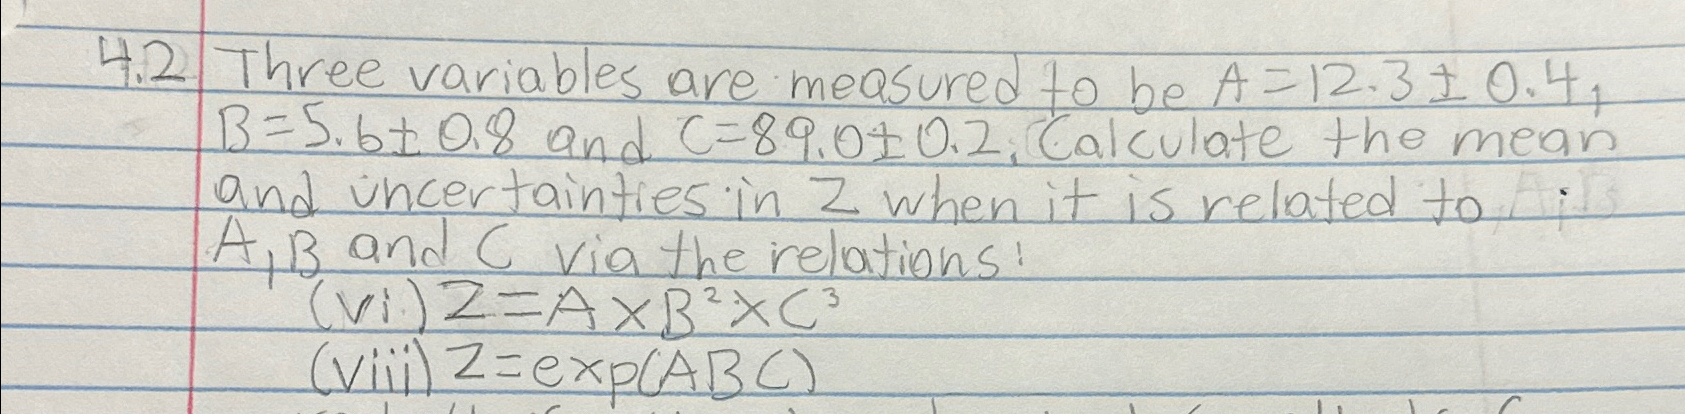 4.2 Three variables are measured to be A=12.3±0.4,
B=5.6±0.8 and C=89.0±0.2. Calculate the mean
and uncertainties in Z when it is related to
A,B and C via the relations:
(vi.) Z=A×B²×C³
(viii) Z=exp(ABC)